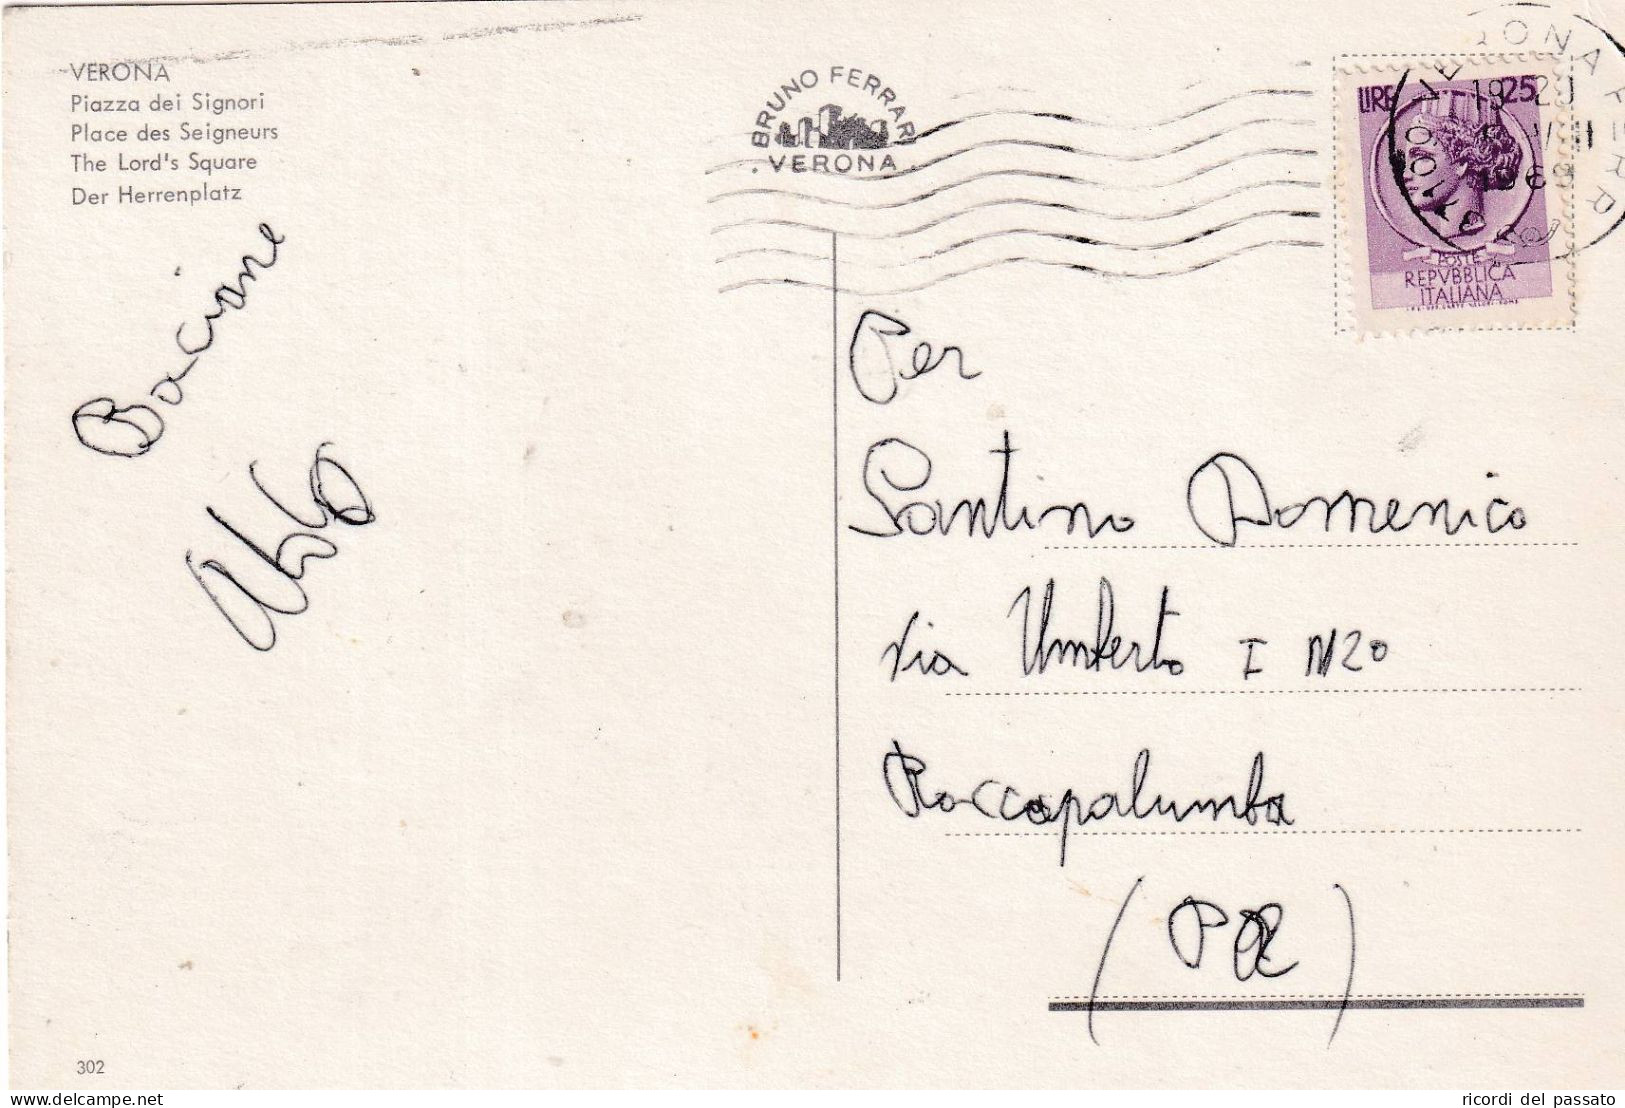 VERONA
Piazza dei Signori
Place des Seigneurs
The Lord's Square
Der Herrenplatz
BRUNO FERRARI
. VERONA .
LIRE 25
POSTE
REPVBBLICA
ITALIANA
37100 VERONA FERR
Bacione
Per
Santino Domenico
Via Umberto I N 20
Roccapalumba
(PA)
302
www.delcampe.net
ricordi del passato